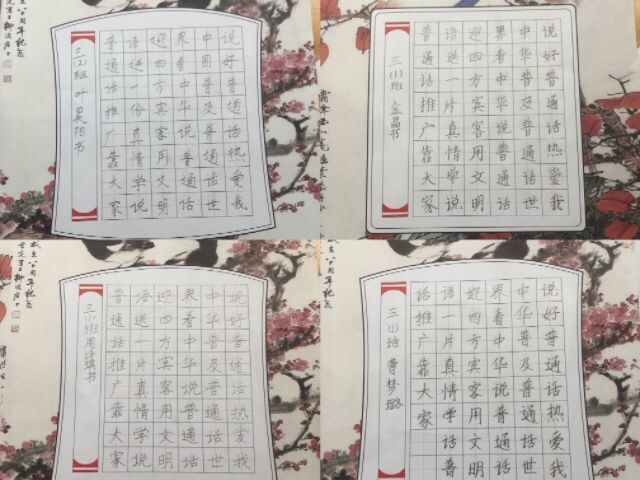 说好普通话热爱我
中国普及普通话世
界看中华说普通话
迎四方宾客用文明
语送一份真情学说
普通话推广靠大家
三(1)班叶昊阳书
说好普通话热爱我
中华普及普通话世
界看中华说普通话
迎四方宾客用文明
语送一片真情学说
普通话推广靠大家
三(1)班金晶书
说好普通话热爱我
中华普及普通话世
界看中华说普通话
迎四方宾客用文明
语送一片真情学说
普通话推广靠大家
三(1)班周琪书
说好普通话热爱我
中华普及普通话世
界看中华说普通话
迎四方宾客用文明
语一片真情学话普
话推广靠大家
三(1)班曹梦璐